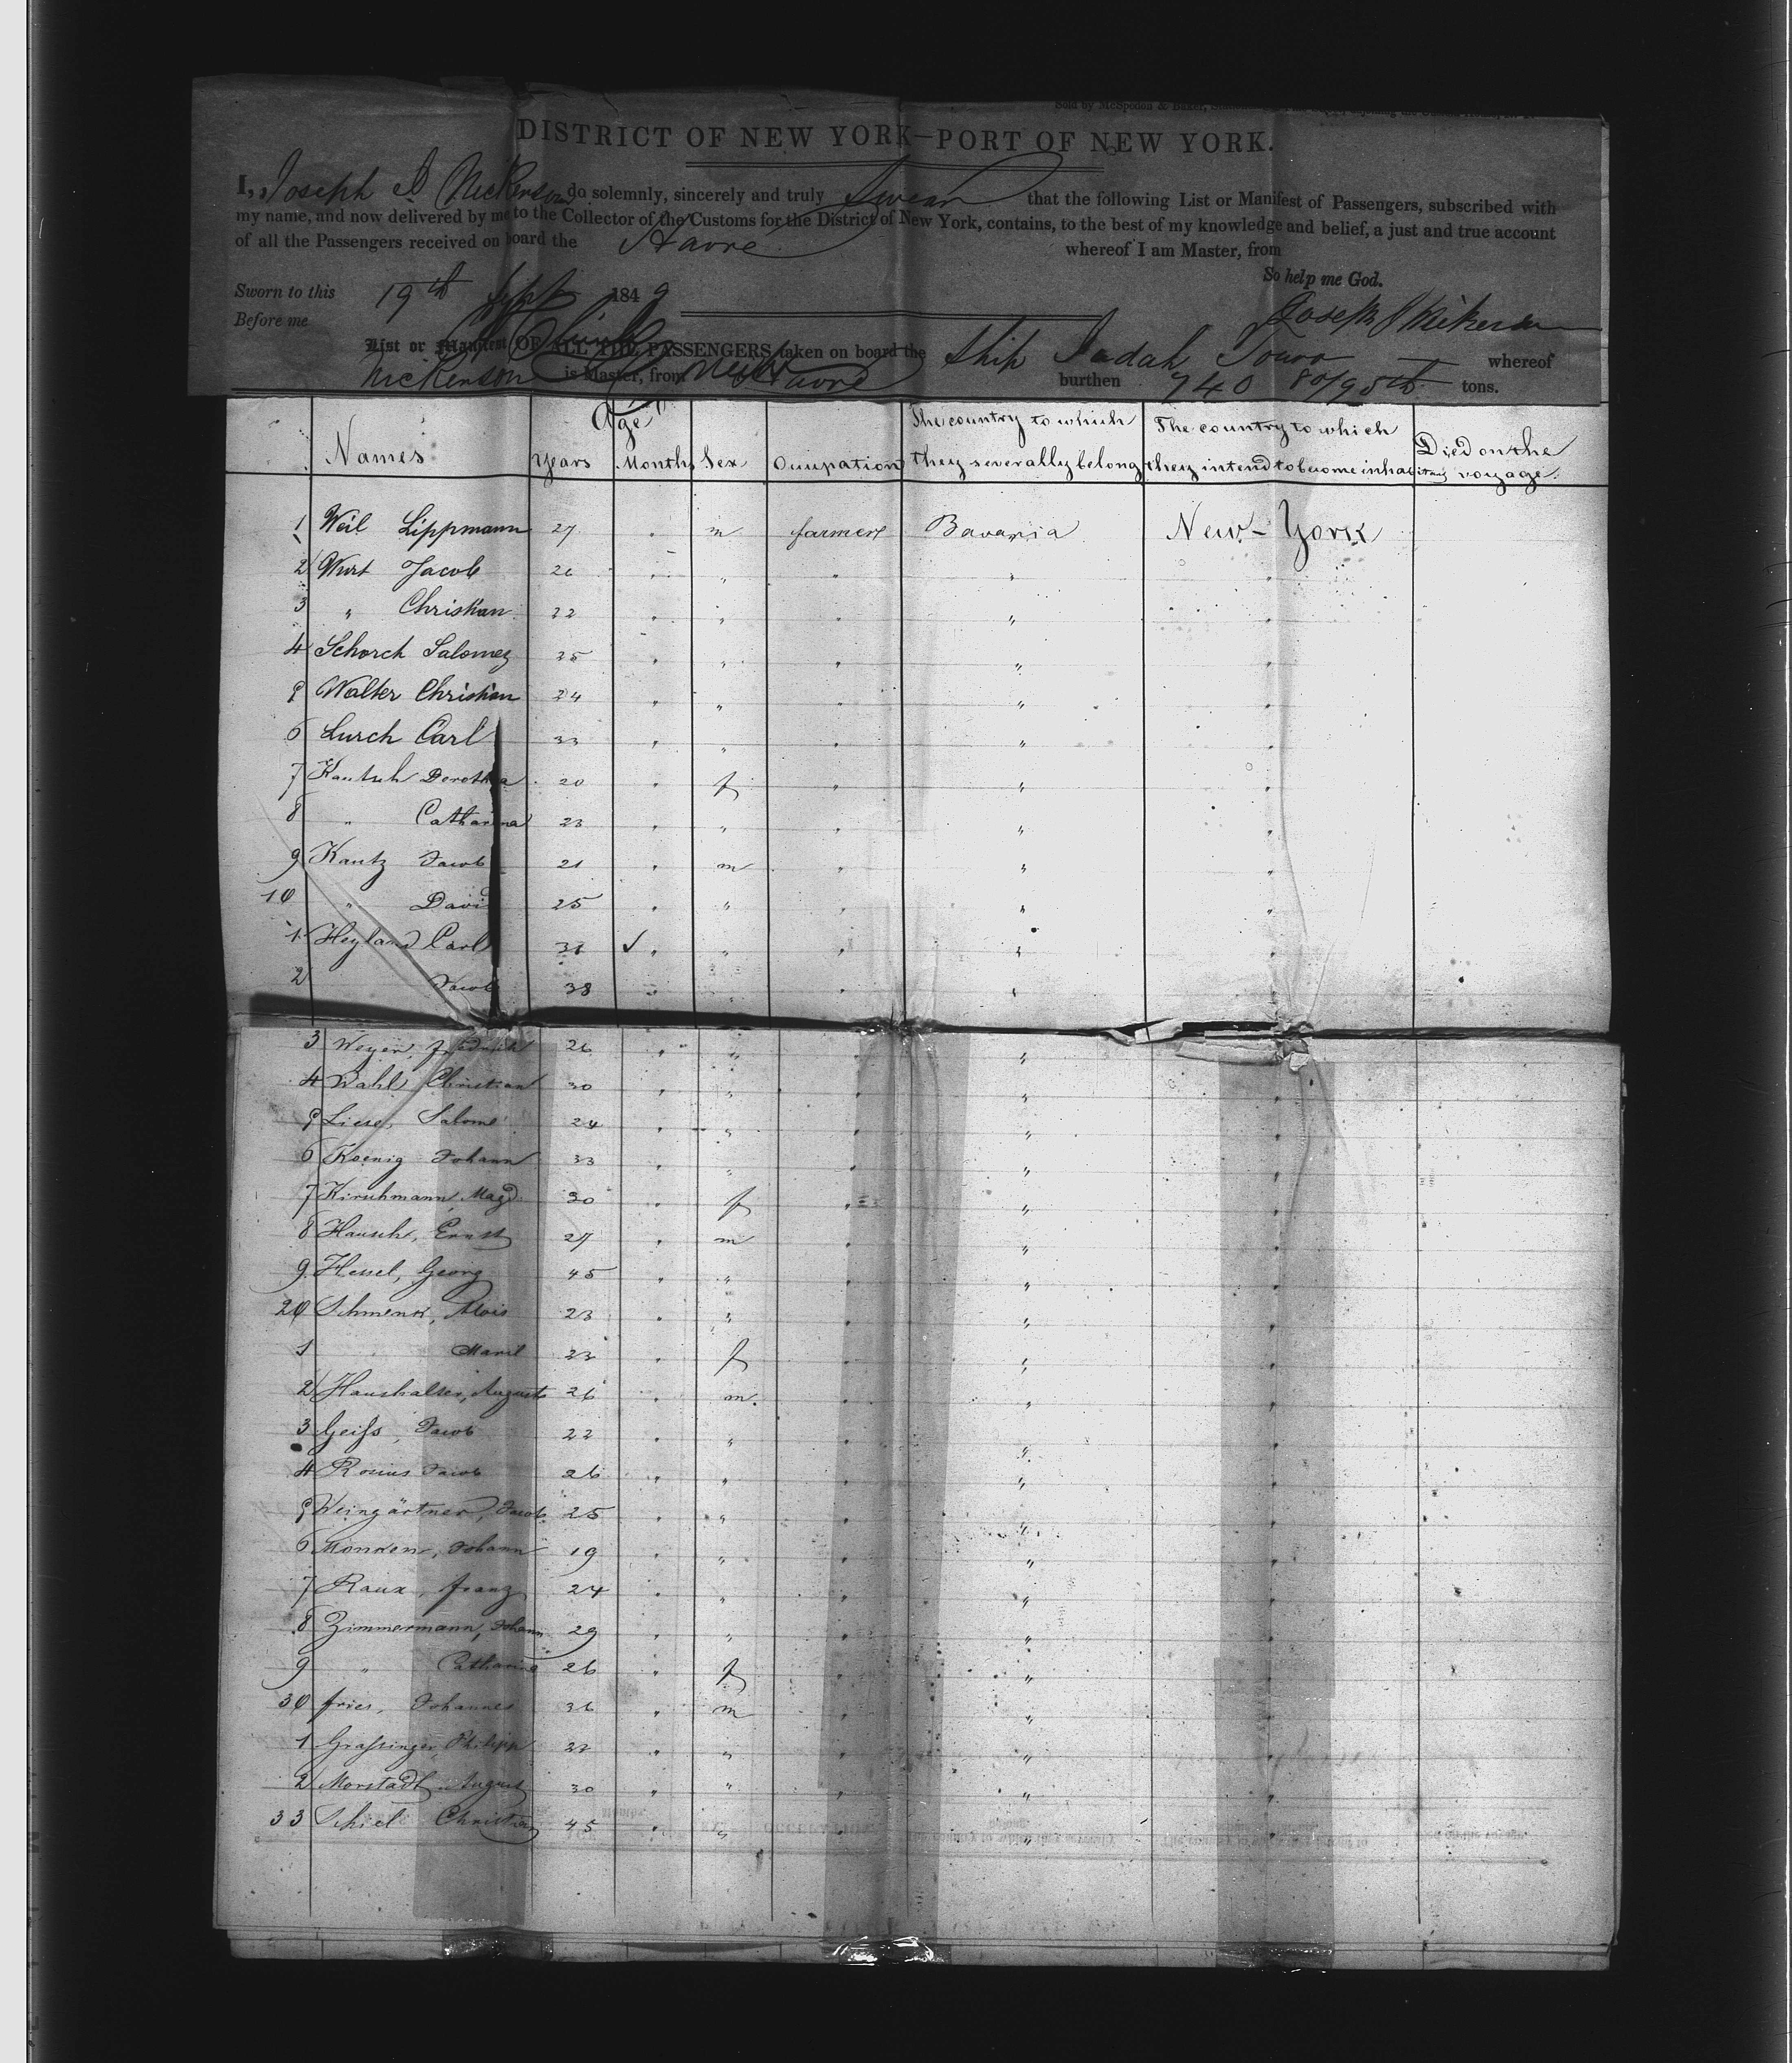 DISTRICT OF NEW YORK—PORT OF NEW YORK.
I, Joseph S Nickerson do solemnly, sincerely and truly Swear that the following List or Manifest of Passengers, subscribed with
my name, and now delivered by me to the Collector of the Customs for the District of New York, contains, to the best of my knowledge and belief, a just and true account
of all the Passengers received on board the Havre whereof I am Master, from
So help me God.
Sworn to this 19th Sept 1849
Before me
List or Manifest OF ALL THE PASSENGERS taken on board the Ship Judah Touro whereof
Nickerson is Master, from Havre burthen 740 80/95th tons.
Names Age Years Months Sex Occupation The country to which they severally belong The country to which they intend to become inhabitants Died on the voyage.
1 Weil Lippmann 27 m farmer Bavaria New-York
2 Wirt Jacob 26 " " " "
3 " Christian 22 " " " "
4 Schorch Salomey 25 " " " "
5 Walter Christian 24 " " " "
6 Lurch Carl 33 " " " "
7 Kautsch Dorothea 20 " f " " "
8 " Catharina 23 " " " " "
9 Kautz Jacob 21 " m " " "
10 " David 25 " " " " "
1 Heyland Carl 31 ✓ " " " " "
2 Jacob 38 " " " " "
3 Weyer, Friedrich 26 " " " " "
4 Wahl, Christian 30 " " " " "
5 Liese, Salome 24 " " " " "
6 Koenig Johann 33 " " " " "
7 Kirschmann, Magd. 30 " f " " "
8 Hausch, Ernst 27 " m " " "
9 Hessel, Georg 45 " " " " "
20 Schmenk, Alois 23 " " " " "
1 Maril 23 " f " " "
2 Haushalter, August 26 " m. " " "
3 Geiss, Jacob 22 " " " " "
4 Rosius Jacob 26 " " " " "
5 Weingärtner, Jacob 25 " " " " "
6 Monken, Johann 19 " " " " "
7 Raux, Franz 24 " " " " "
8 Zimmermann, Johann 29 " " " " "
9 " Catharine 26 " f " " "
30 Fries, Johannes 36 " m " " "
1 Grassinger, Philipp 22 " " " " "
2 Morstadt, August 30 " " " " "
33 Schiel Christian 45 " " " " "